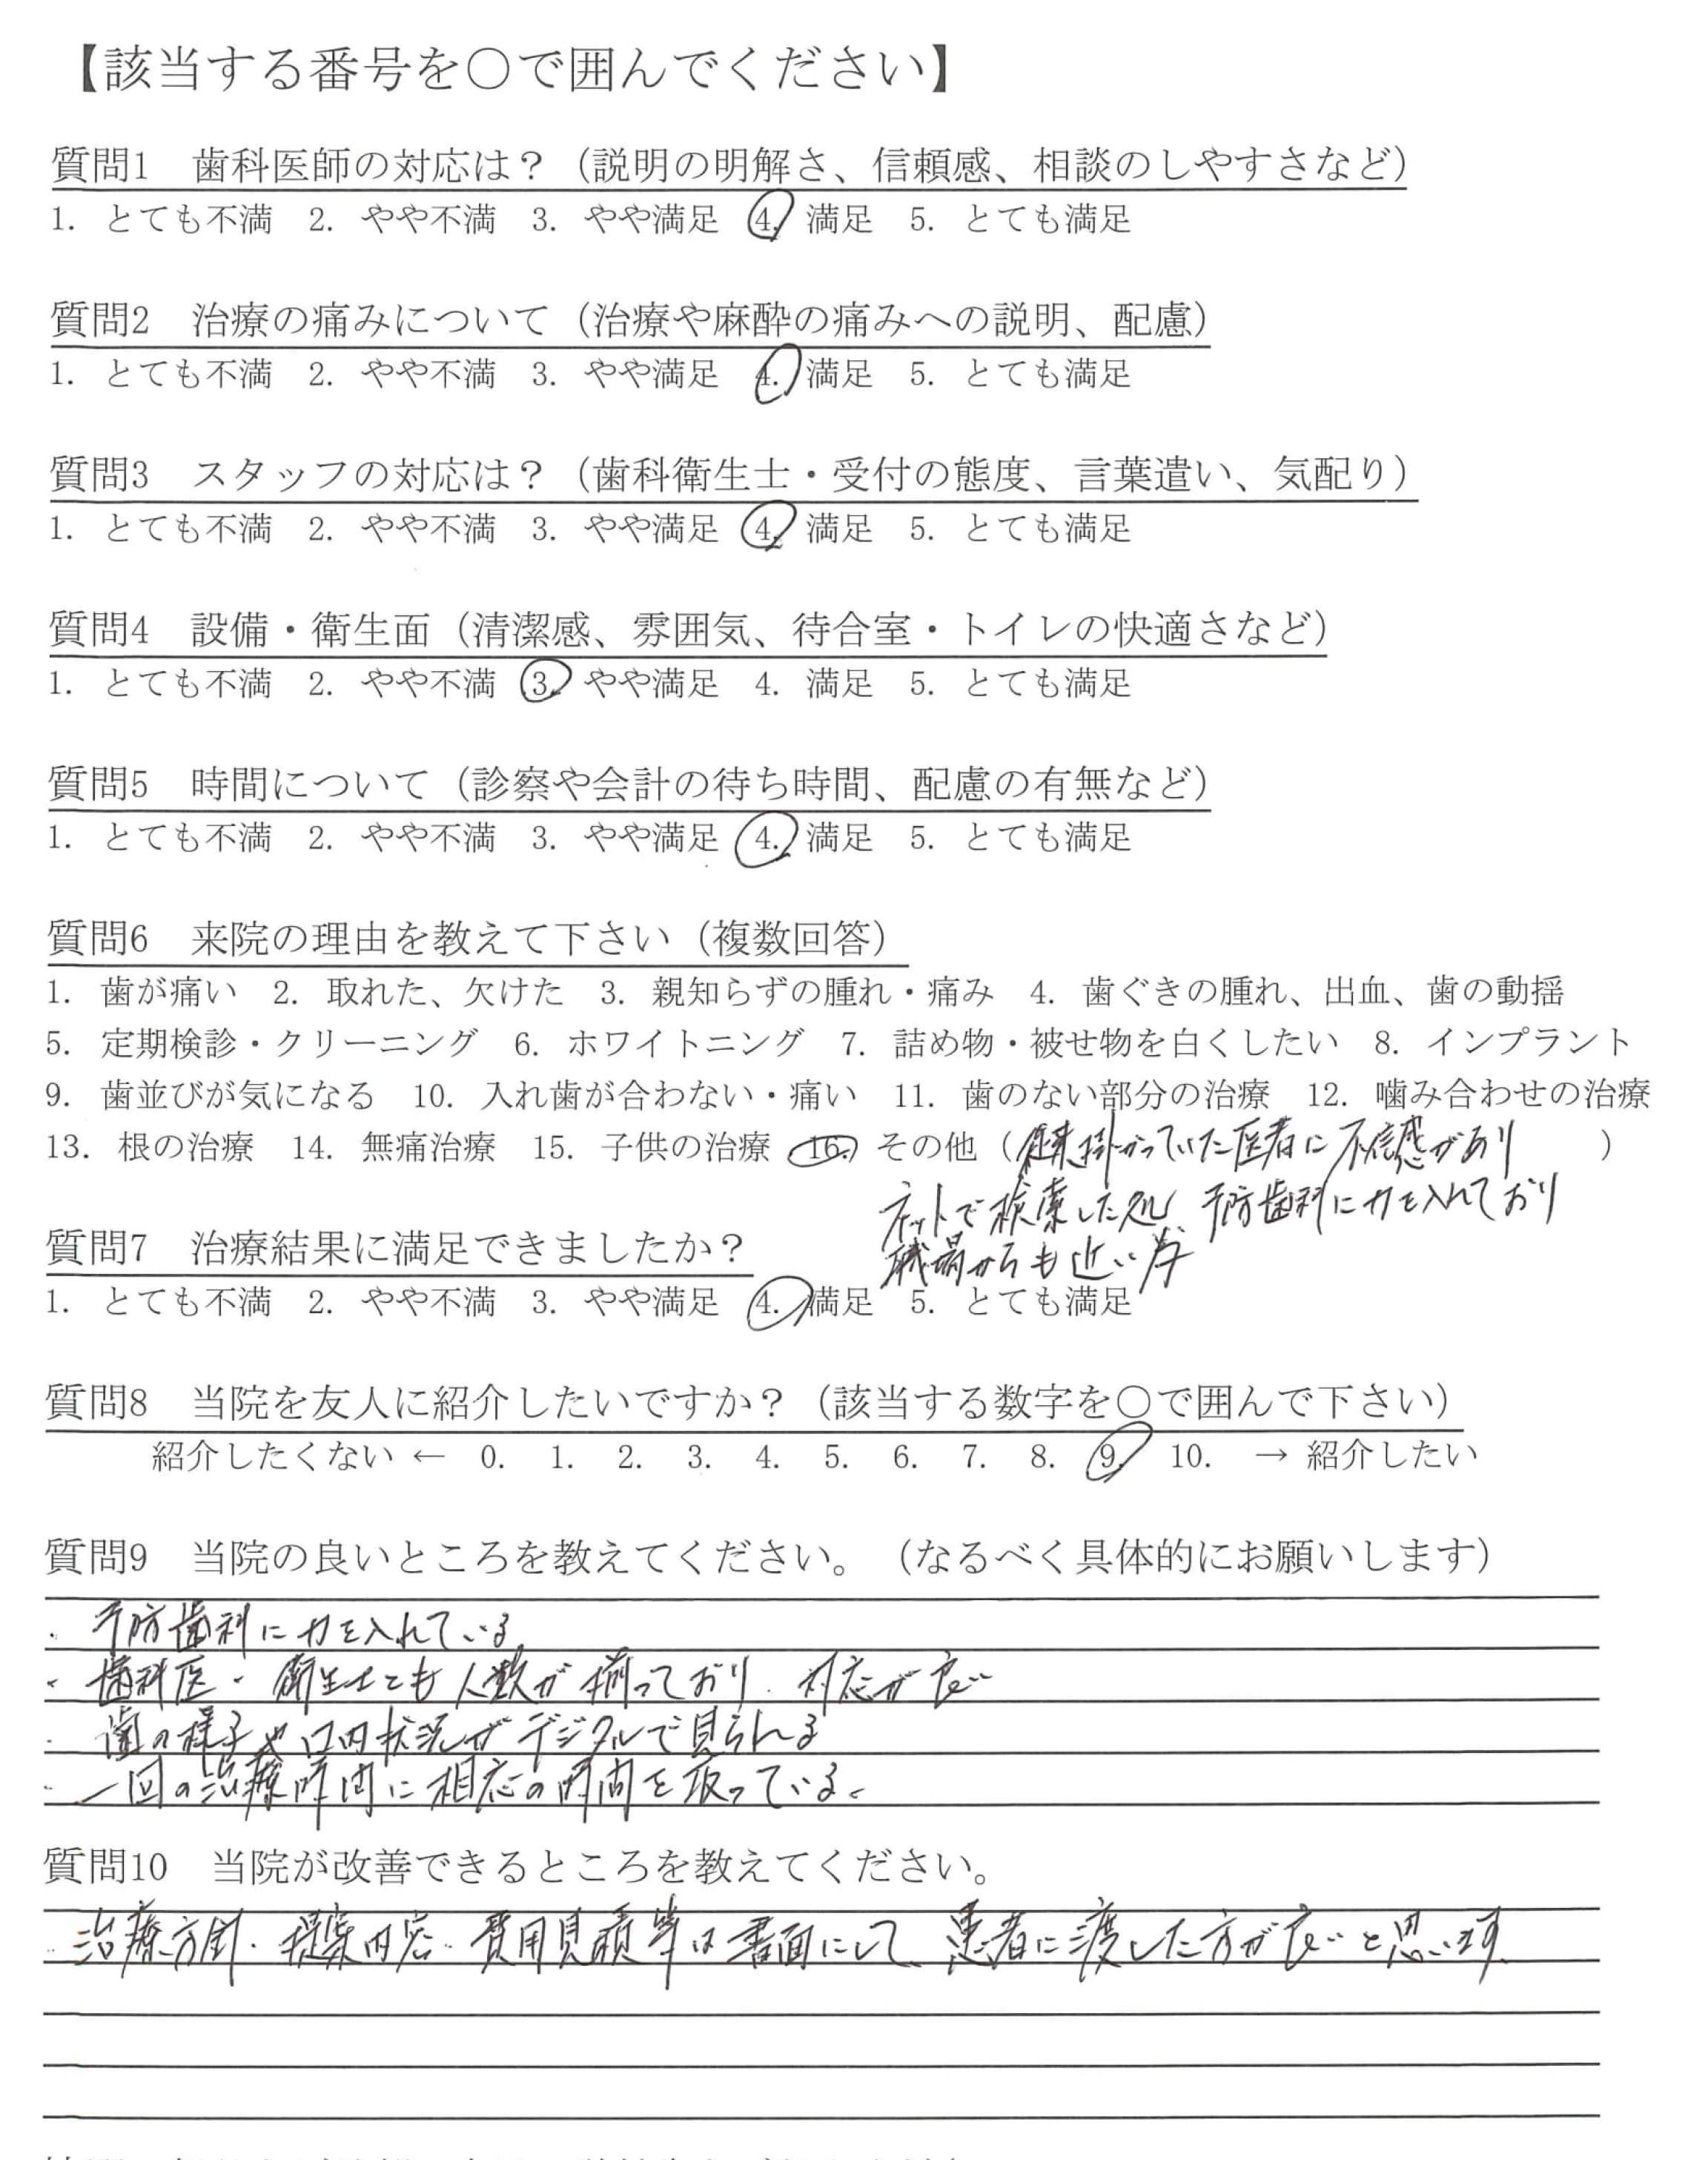 【該当する番号を○で囲んでください】
質問1　歯科医師の対応は？（説明の明解さ、信頼感、相談のしやすさなど）
1. とても不満　2. やや不満　3. やや満足　4. 満足　5. とても満足
質問2　治療の痛みについて（治療や麻酔の痛みへの説明、配慮）
1. とても不満　2. やや不満　3. やや満足　4. 満足　5. とても満足
質問3　スタッフの対応は？（歯科衛生士・受付の態度、言葉遣い、気配り）
1. とても不満　2. やや不満　3. やや満足　4. 満足　5. とても満足
質問4　設備・衛生面（清潔感、雰囲気、待合室・トイレの快適さなど）
1. とても不満　2. やや不満　3. やや満足　4. 満足　5. とても満足
質問5　時間について（診察や会計の待ち時間、配慮の有無など）
1. とても不満　2. やや不満　3. やや満足　4. 満足　5. とても満足
質問6　来院の理由を教えて下さい（複数回答）
1. 歯が痛い　2. 取れた、欠けた　3. 親知らずの腫れ・痛み　4. 歯ぐきの腫れ、出血、歯の動揺
5. 定期検診・クリーニング　6. ホワイトニング　7. 詰め物・被せ物を白くしたい　8. インプラント
9. 歯並びが気になる　10. 入れ歯が合わない・痛い　11. 歯のない部分の治療　12. 噛み合わせの治療
13. 根の治療　14. 無痛治療　15. 子供の治療　16. その他（従来掛かっていた医者に不信感があり　）
ネットで検索した処、予防歯科に力を入れており
職場からも近い為
質問7　治療結果に満足できましたか？
1. とても不満　2. やや不満　3. やや満足　4. 満足　5. とても満足
質問8　当院を友人に紹介したいですか？（該当する数字を○で囲んで下さい）
紹介したくない ← 0. 1. 2. 3. 4. 5. 6. 7. 8. 9. 10. → 紹介したい
質問9　当院の良いところを教えてください。（なるべく具体的にお願いします）
・予防歯科に力を入れている
・歯科医・衛生士とも人数が揃っており、対応が良い
・歯の様子や口内状況がデジタルで見られる
・一回の治療時間に相応の時間を取っている。
質問10　当院が改善できるところを教えてください。
治療方針・提案内容・費用見積等は書面にして、患者に渡した方が良いと思います。